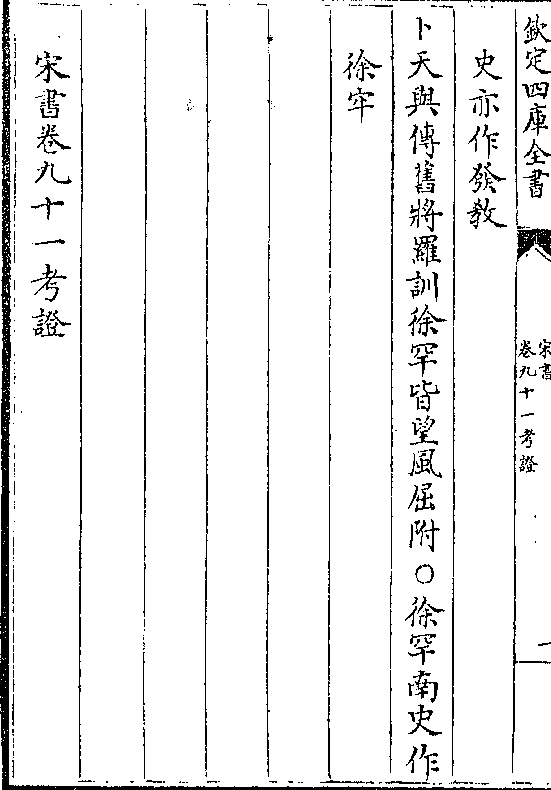 欽定四庫全書
宋書
卷九十一考證
一
史亦作發教
卜天與傳舊將羅訓徐罕皆望風屈附○徐罕南史作
徐牢
宋書卷九十一考證